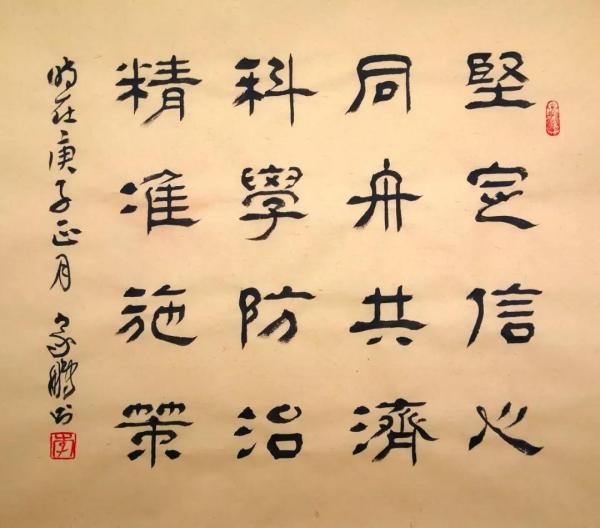 堅定信心
同舟共濟
科學防治
精准施策
時在庚子正月